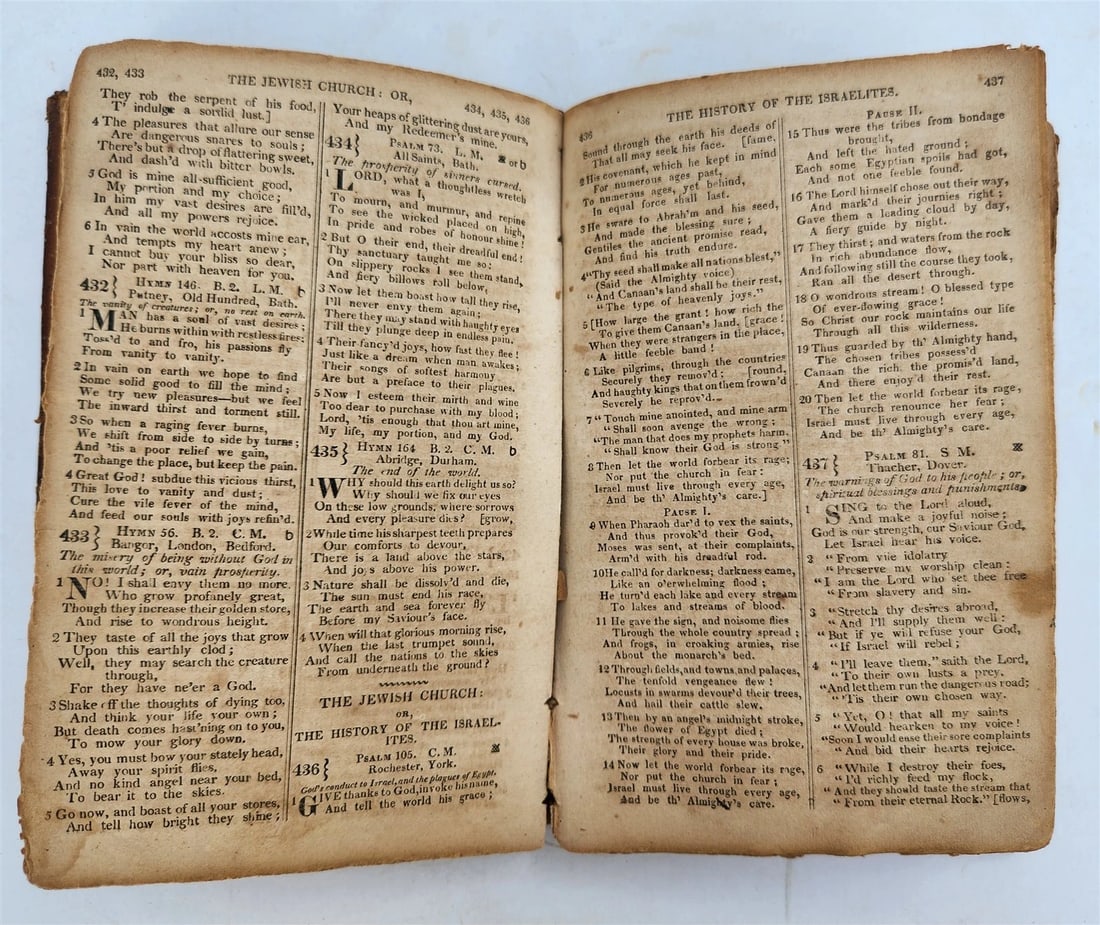 432, 433
THE JEWISH CHURCH: OR,
434, 435, 436
They rob the serpent of his food,
T' indulge a sordid lust.]
4 The pleasures that allure our sense
Are dangerous snares to souls;
There's but a drop of flattering sweet,
And dash'd with bitter bowls.
5 God is mine all-sufficient good,
My portion and my choice;
In him my vast desires are fill'd,
And all my powers rejoice.
6 In vain the world accosts mine ear,
And tempts my heart anew;
I cannot buy your bliss so dear,
Nor part with heaven for you.
432} HYMN 146. B. 2. L. M. b
Putney, Old Hundred, Bath.
The vanity of creatures; or, no rest on earth.
1 MAN has a soul of vast desires;
He burns within with restless fires:
Toss'd to and fro, his passions fly
From vanity to vanity.
2 In vain on earth we hope to find
Some solid good to fill the mind;
We try new pleasures—but we feel
The inward thirst and torment still.
3 So when a raging fever burns,
We shift from side to side by turns;
And 'tis a poor relief we gain,
To change the place, but keep the pain.
4 Great God! subdue this vicious thirst,
This love to vanity and dust;
Cure the vile fever of the mind,
And feed our souls with joys refin'd.
433} HYMN 56. B. 2. C. M. b
Bangor, London, Bedford.
The misery of being without God in
this world; or, vain prosperity.
1 NO! I shall envy them no more
Who grow profanely great,
Though they increase their golden store,
And rise to wondrous height.
2 They taste of all the joys that grow
Upon this earthly clod;
Well, they may search the creature
through,
For they have ne'er a God.
3 Shake off the thoughts of dying too,
And think your life your own;
But death comes hast'ning on to you,
To mow your glory down.
4 Yes, you must bow your stately head,
Away your spirit flies,
And no kind angel near your bed,
To bear it to the skies.
5 Go now, and boast of all your stores,
And tell how bright they shine;
Your heaps of glittering dust are yours,
And my Redeemer's mine.
434} PSALM 73. L. M. or b
All Saints, Bath.
The prosperity of sinners cursed.
1 LORD, what a thoughtless wretch
was I,
To mourn, and murmur, and repine
To see the wicked placed on high,
In pride and robes of honour shine!
2 But O their end, their dreadful end!
Thy sanctuary taught me so:
On slippery rocks I see them stand,
And fiery billows roll below.
3 Now let them boast how tall they rise,
I'll never envy them again;
There they may stand with haughty eyes
Till they plunge deep in endless pain.
4 Their fancy'd joys, how fast they flee!
Just like a dream when man awakes;
Their songs of softest harmony
Are but a preface to their plagues.
5 Now I esteem their mirth and wine
Too dear to purchase with my blood;
Lord, 'tis enough that thou art mine,
My life, my portion, and my God.
435} HYMN 164. B. 2. C. M. b
Abridge, Durham.
The end of the world.
1 WHY should this earth delight us so?
Why should we fix our eyes
On these low grounds, where sorrows
And every pleasure dies? [grow,
2 While time his sharpest teeth prepares
Our comforts to devour,
There is a land above the stars,
And joys above his power.
3 Nature shall be dissolv'd and die,
The sun must end his race,
The earth and sea forever fly
Before my Saviour's face.
4 When will that glorious morning rise,
When the last trumpet sound,
And call the nations to the skies
From underneath the ground?
THE JEWISH CHURCH:
OR,
THE HISTORY OF THE ISRAEL-
ITES.
436} PSALM 105. C. M.
Rochester, York.
God's conduct to Israel, and the plagues of Egypt.
1 GIVE thanks to God, invoke his name,
And tell the world his grace;
436
THE HISTORY OF THE ISRAELITES.
437
Sound through the earth his deeds of
That all may seek his face. [fame,
2 His covenant, which he kept in mind
For numerous ages past,
To numerous ages, yet behind,
In equal force shall last.
3 He sware to Abrah'm and his seed,
And made the blessing sure;
Gentiles the ancient promise read,
And find his truth endure.
4 "Thy seed shall make all nations blest,"
(Said the Almighty voice)
"And Canaan's land shall be their rest,
"The type of heavenly joys."
5 [How large the grant! how rich the
To give them Canaan's land, [grace!
When they were strangers in the place,
A little feeble band!
6 Like pilgrims, through the countries
Securely they remov'd; [round,
And haughty kings that on them frown'd
Severely he reprov'd.
7 "Touch mine anointed, and mine arm
"Shall soon avenge the wrong;
"The man that does my prophets harm,
"Shall know their God is strong."
8 Then let the world forbear its rage;
Nor put the church in fear:
Israel must live through every age,
And be th' Almighty's care.]
PAUSE I.
9 When Pharaoh dar'd to vex the saints,
And thus provok'd their God,
Moses was sent, at their complaints,
Arm'd with his dreadful rod.
10 He call'd for darkness; darkness came,
Like an o'erwhelming flood;
He turn'd each lake and every stream
To lakes and streams of blood.
11 He gave the sign, and noisome flies
Through the whole country spread;
And frogs, in croaking armies, rise
About the monarch's bed.
12 Through fields, and towns, and palaces,
The tenfold vengeance flew!
Locusts in swarms devour'd their trees,
And hail their cattle slew.
13 Then by an angel's midnight stroke,
The flower of Egypt died;
The strength of every house was broke,
Their glory and their pride.
14 Now let the world forbear its rage,
Nor put the church in fear;
Israel must live through every age,
And be th' Almighty's care.
PAUSE II.
15 Thus were the tribes from bondage
brought,
And left the hated ground;
Each some Egyptian spoils had got,
And not one feeble found.
16 The Lord himself chose out their way,
And mark'd their journies right;
Gave them a leading cloud by day,
A fiery guide by night.
17 They thirst; and waters from the rock
In rich abundance flow,
And following still the course they took,
Ran all the desert through.
18 O wondrous stream! O blessed type
Of ever-flowing grace!
So Christ our rock maintains our life
Through all this wilderness.
19 Thus guarded by th' Almighty hand,
The chosen tribes possess'd
Canaan the rich, the promis'd land,
And there enjoy'd their rest.
20 Then let the world forbear its rage,
The church renounce her fear;
Israel must live through every age,
And be th' Almighty's care.
437} PSALM 81. S M.
Thacher, Dover.
The warnings of God to his people; or,
spiritual blessings and punishments.
1 SING to the Lord aloud,
And make a joyful noise;
God is our strength, our Saviour God,
Let Israel hear his voice.
2 "From vile idolatry
"Preserve my worship clean:
"I am the Lord who set thee free
"From slavery and sin.
3 "Stretch thy desires abroad,
"And I'll supply them well:
"But if ye will refuse your God,
"If Israel will rebel;
4 "I'll leave them," saith the Lord,
"To their own lusts a prey,
"And let them run the dangerous road;
"'Tis their own chosen way.
5 "Yet, O! that all my saints
"Would hearken to my voice!
"Soon I would ease their sore complaints
"And bid their hearts rejoice.
6 "While I destroy their foes,
"I'd richly feed my flock,
"And they should taste the stream that
"From their eternal Rock." [flows,